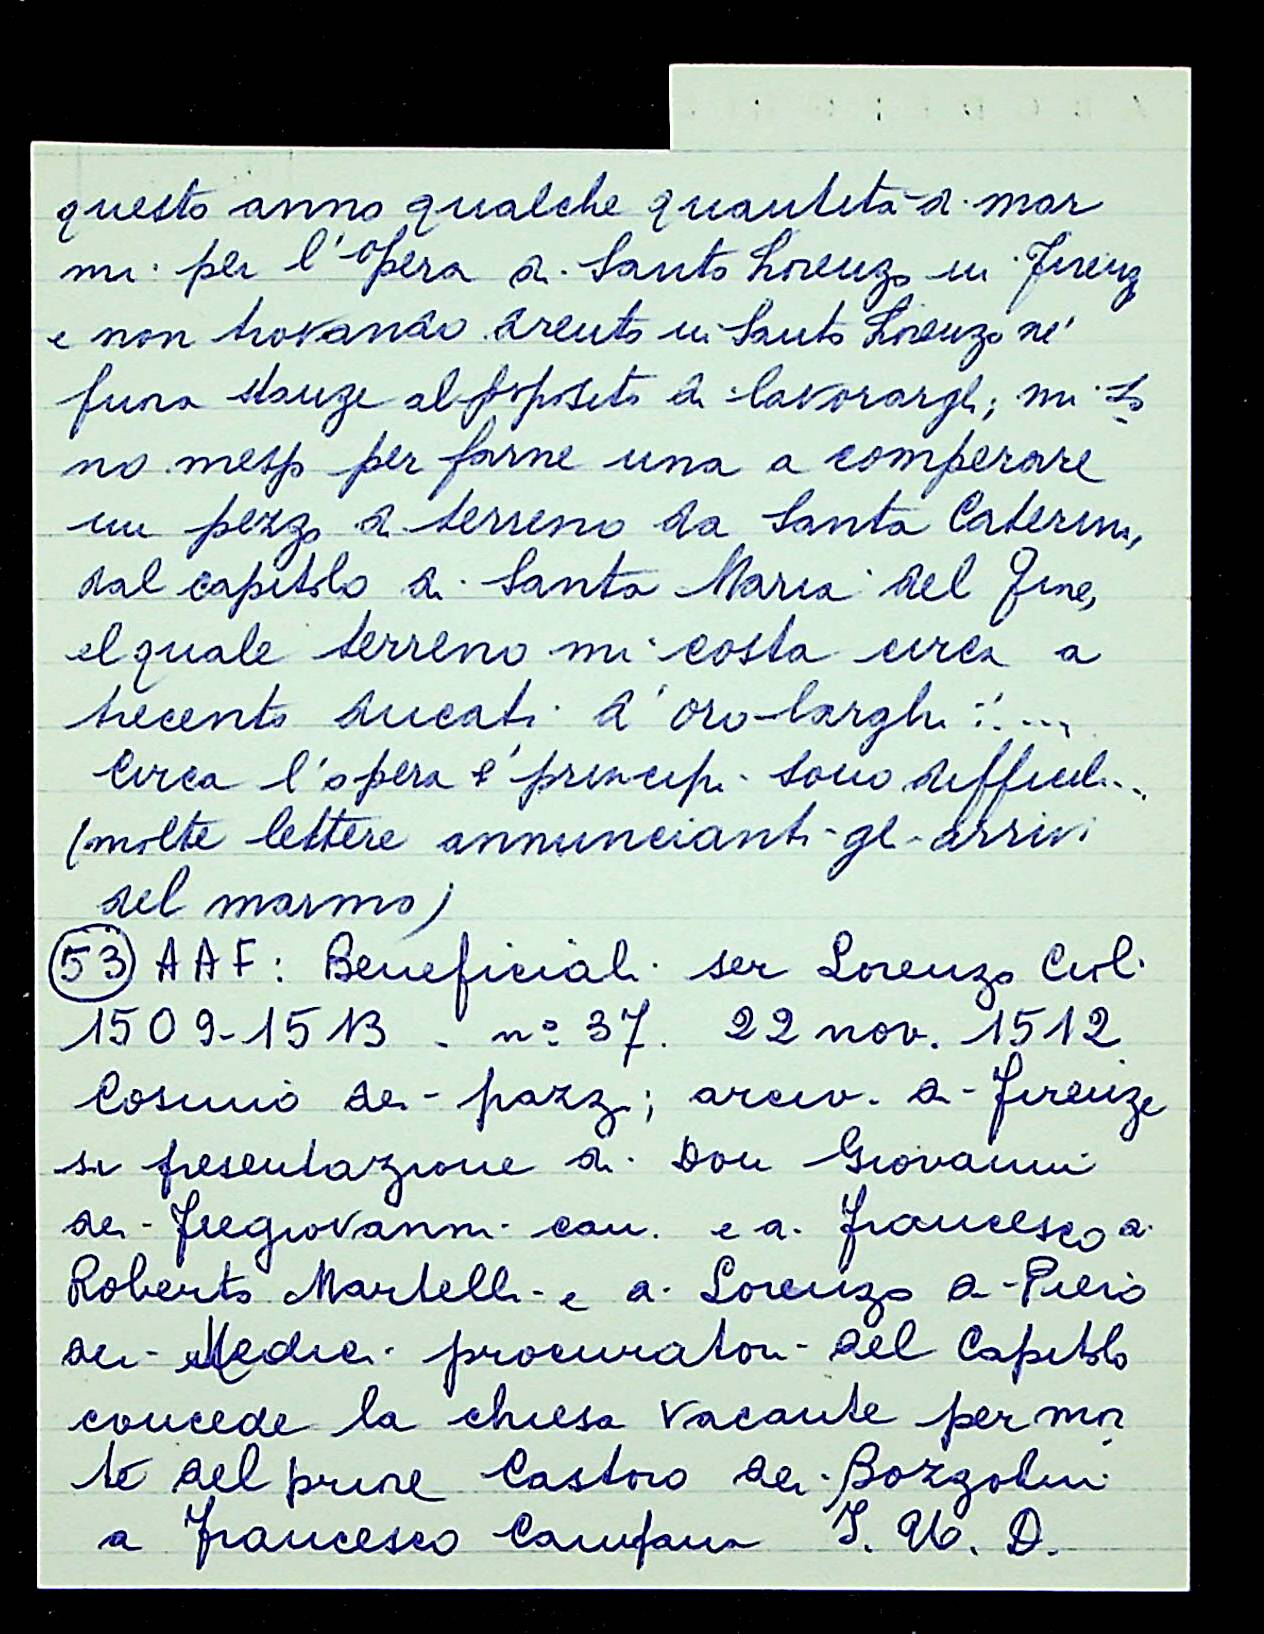 questo anno qualche quantità di mar
mi per l'opera di Santo Lorenzo in Firenz
e non trovando drento in Santo Lorenzo né
fuora stanze al proposito di lavorargli; mi so
no messo per farne una a comperare
un pezzo di terreno da Santa Caterina,
dal capitolo di Santa Maria del Fiore,
el quale terreno mi costa circa a
trecento ducati d'oro larghi: ....
Circa l'opera e' principi sono difficili...
(molte lettere annuncianti gli arrivi
del marmo)
53 AAF: Beneficiali ser Lorenzo Civli
1509-1513 - n° 37. 22 nov. 1512
Cosimo dei pazzi; arciv. di Firenze
su presentazione di Don Giovanni
dei Fregiovanni can. e di Francesco di
Roberto Martelli e di Lorenzo di Piero
dei Medici procuratori del Capitolo
concede la chiesa vacante per mor
te del priore Castoro dei Bozzolini
a Francesco Campana J. U. D.